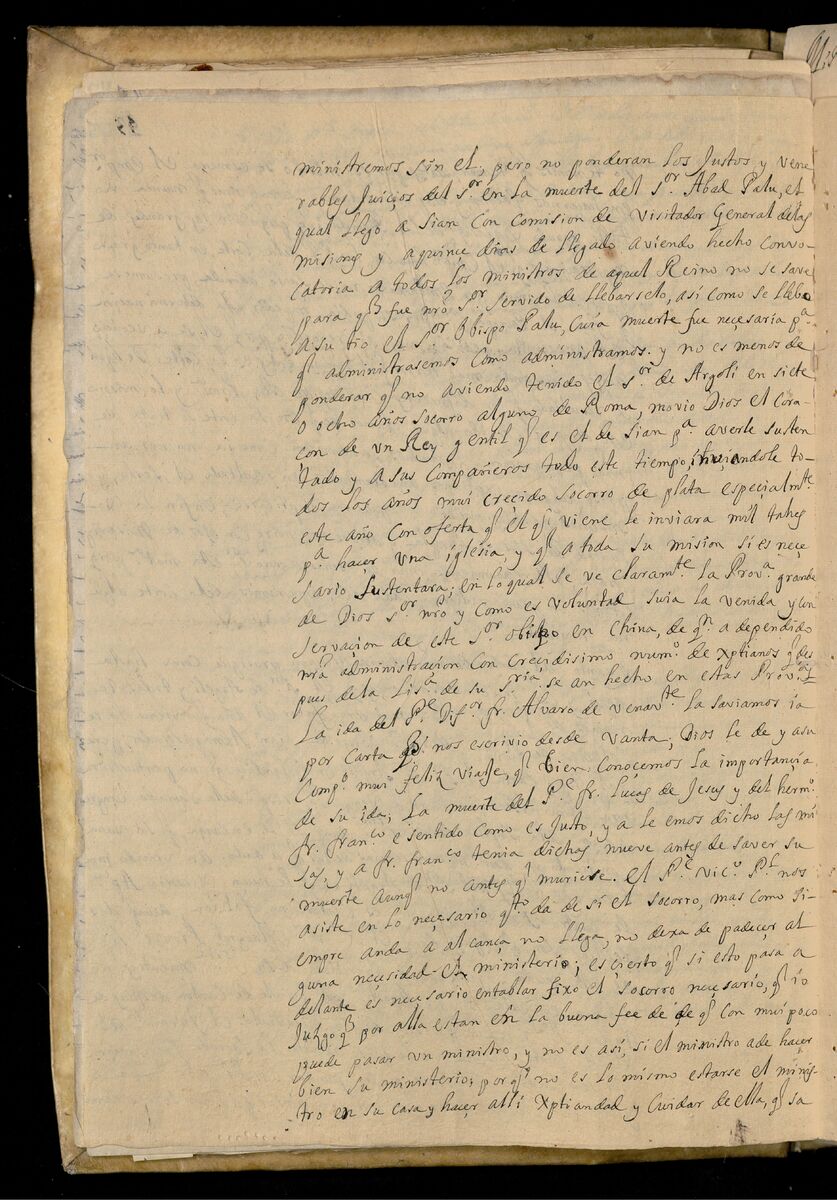 ministremos sin el, pero no ponderan los Justos y vene
rables Juiçios del s.or en la muerte del s.or Abad Palu, el
qual llego a Sian con comision de Visitador General delas
misiones y a quinçe dias de llegado aviendo hecho convo
catoria a todos los ministros de aquel Reino no se save
para q̃ fue nr̃o s.or servido de llebarselo, así como se llebo
a su tio el s.or obispo Palu, cuia muerte fue neçesaria p.a
q̃ administrasemos como administramos. y no es menos de
ponderar q̃ no aviendo tenido el s.or de Argoli en siete
o ocho años socorro alguno de Roma, movio Dios el cora
con de vn Rey gentil q̃ es el de sian p.a averle susten
tado y a sus compañeros todo este tiempo, inviandole to
dos los años mui crecido socorro de plata espeçialm.te
este año con oferta q̃ el q̃ viene le inviara mil tahes
p.a haçer vna iglesia, y q̃ a toda su mision si es neçe
sario sustentara; en lo qual se ve claram.te la Prov.a grande
de Dios s.or nr̃o y como es voluntad suia la venida y con
servaçion de este s.or obispo en China, de q̃n a dependido
nr̃a administraçion con crecidisimo num.o de xptianos q̃ des
pues dela Lis.a de su s.ria se an hecho en estas Prov.as
La ida del P.e Dif.or fr. Alvaro de venav.te la saviamos ia
por carta q̃ nos escrivio desde vanta; Dios le de y a su
comp.o mui feliz viaje, q̃ bien conocemos la importançia
de su ida; La muerte del P.e fr. Lucas de Jesus y del herm.o
fr. fran.co e sentido como es justo, y a le emos dicho las mi
sas, y a fr. fran.co tenia dichas nueve antes de saver su
muerte aunq̃ no antes q̃ muriese. el P.e Vic.o P.l nos
asiste en lo neçesario q.to da de si el socorro, mas como si
empre anda a alcança no llega, no dexa de padeçer al
guna neçesidad el ministerio; es çierto q̃ si esto pasa a
delante es neçesario entablar fixo el socorro neçesario, q̃ io
Juzgo q̃ por alla estan en la buena fee de de q̃ con mui poco
puede pasar vn ministro, y no es así, si el ministro a de haçer
bien su ministerio; por q̃ no es lo mismo estarse el minis
tro en su casa y haçer alli xptiandad y cuidar de ella, q̃ sa